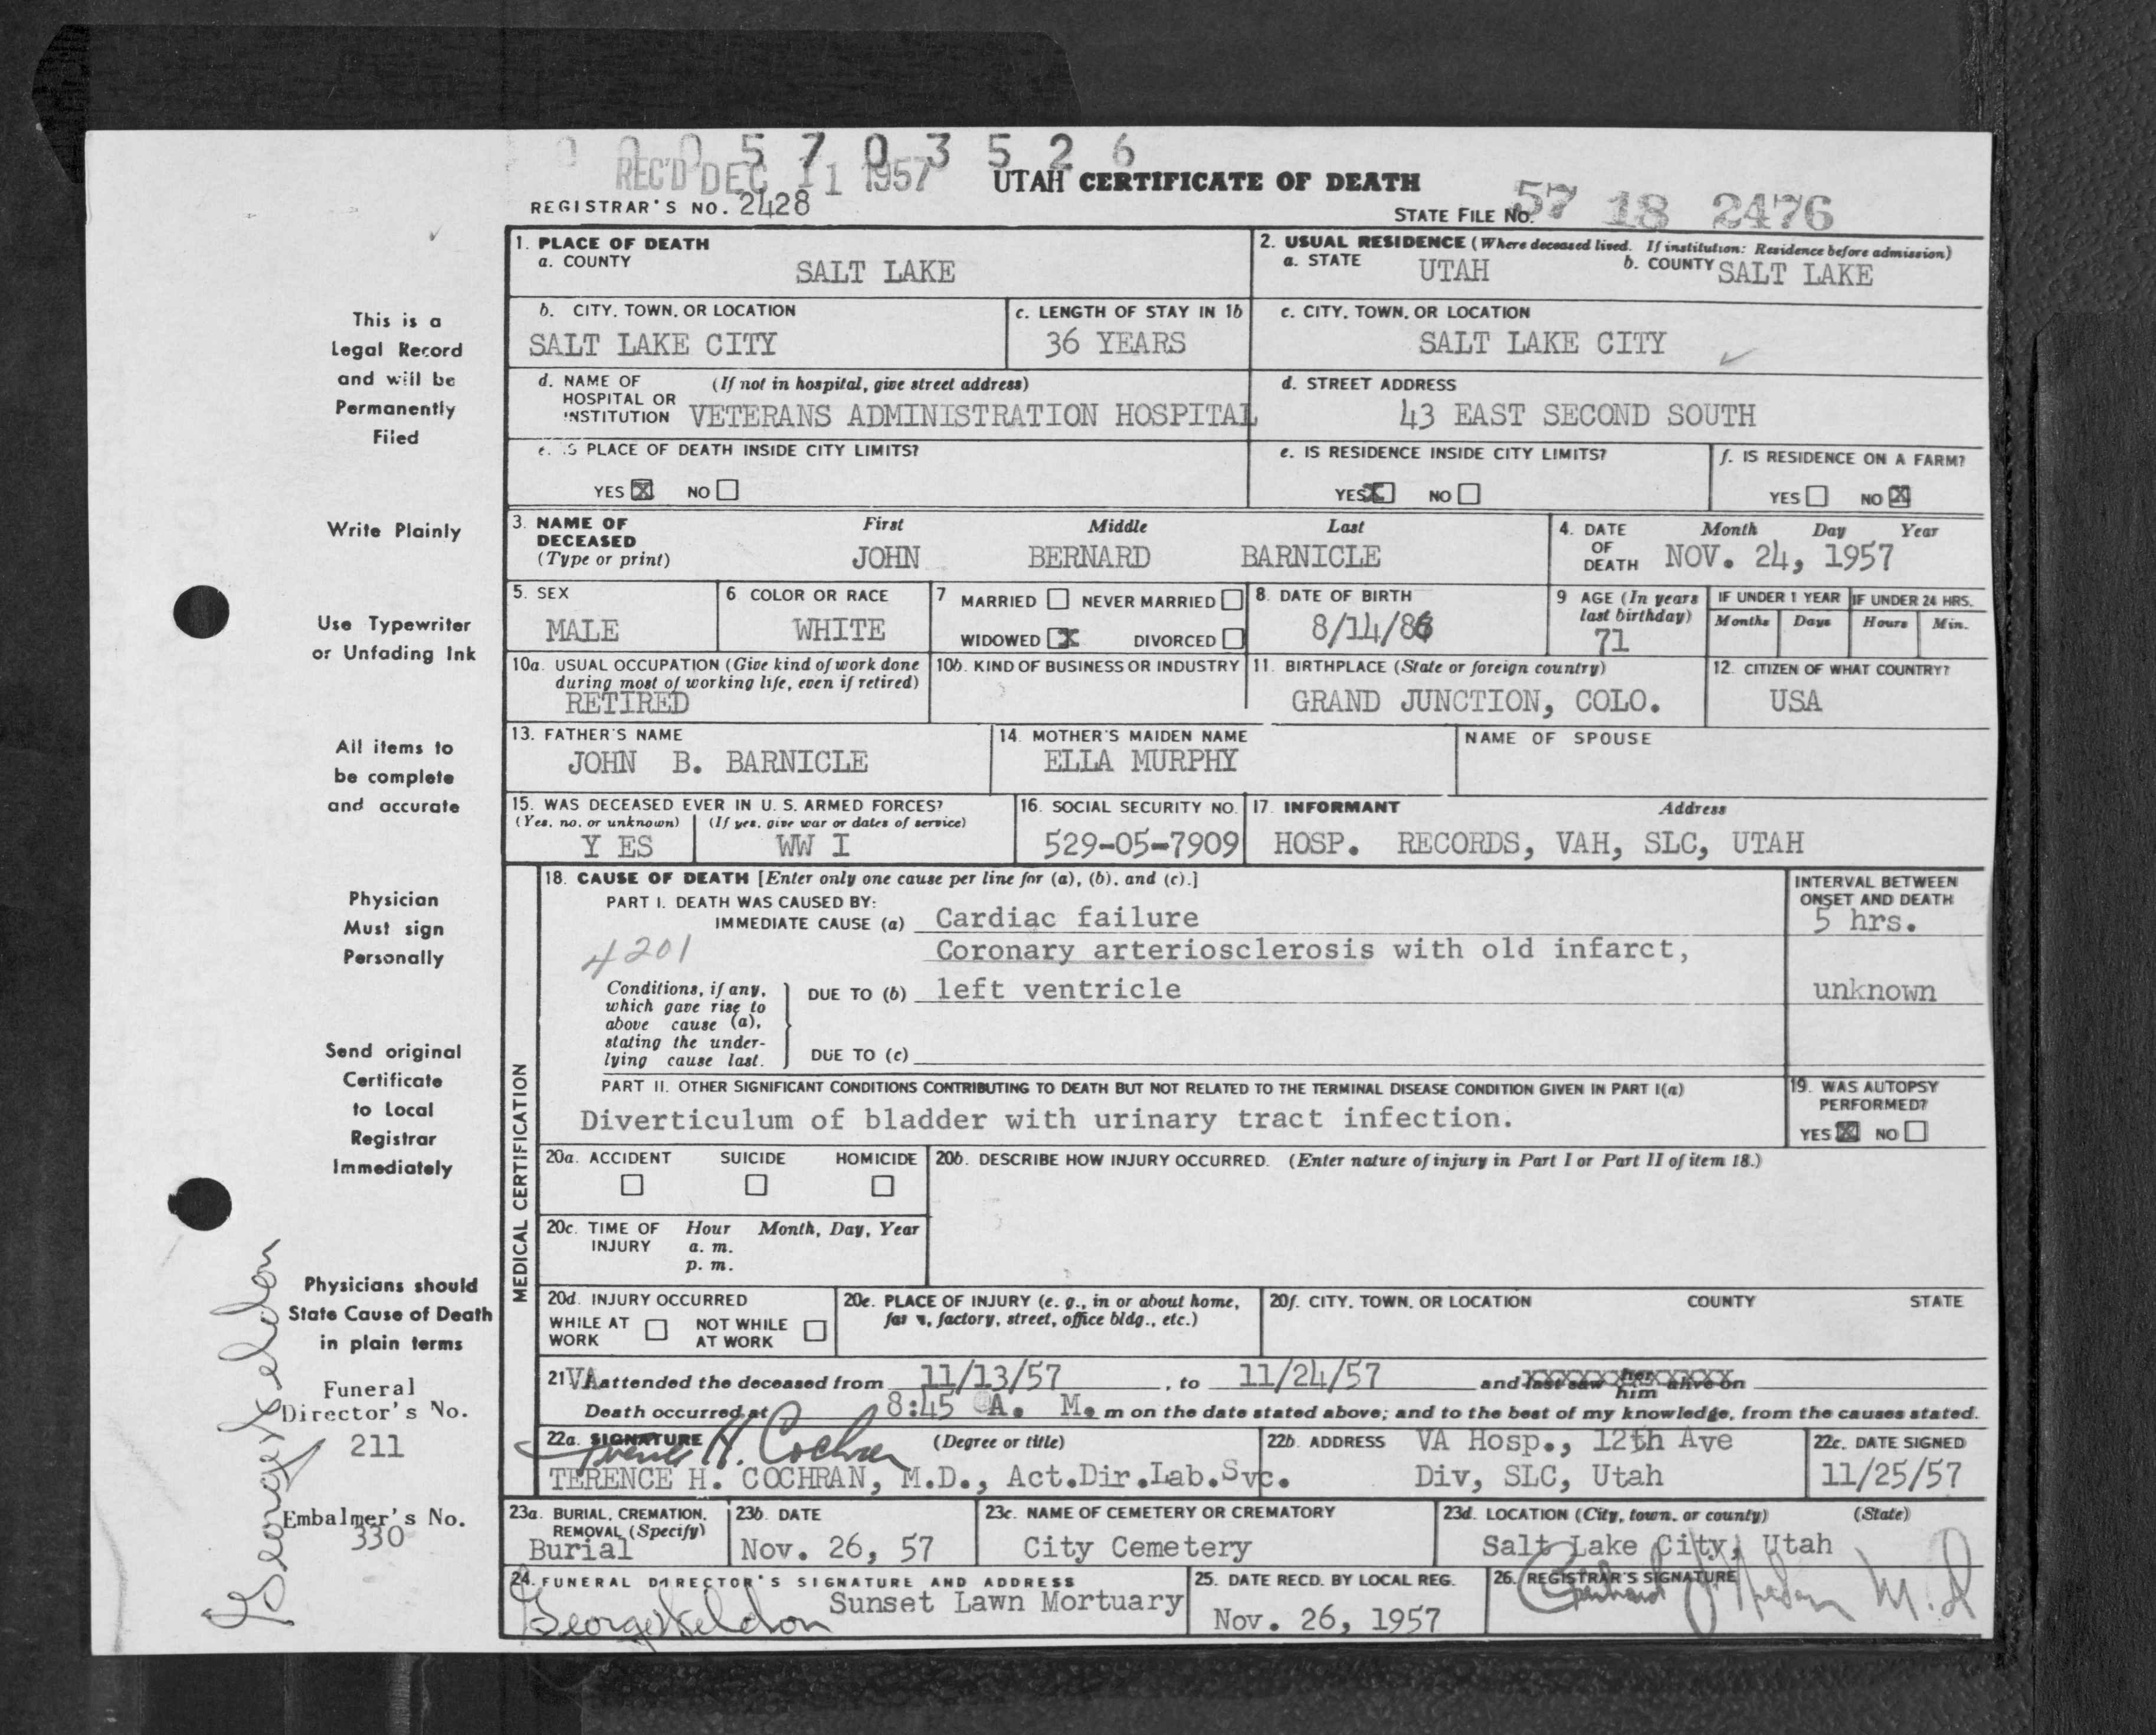 0 0 0 5 7 0 3 5 2 6
REC'D DEC 11 1957 UTAH CERTIFICATE OF DEATH
REGISTRAR'S NO. 2428 STATE FILE NO. 57 18 2476
1. PLACE OF DEATH
a. COUNTY
SALT LAKE
2. USUAL RESIDENCE (Where deceased lived. If institution: Residence before admission)
a. STATE UTAH b. COUNTY SALT LAKE
b. CITY, TOWN, OR LOCATION
SALT LAKE CITY
c. LENGTH OF STAY IN 1b
36 YEARS
c. CITY, TOWN, OR LOCATION
SALT LAKE CITY
d. NAME OF (If not in hospital, give street address)
HOSPITAL OR
INSTITUTION VETERANS ADMINISTRATION HOSPITAL
d. STREET ADDRESS
43 EAST SECOND SOUTH
e. IS PLACE OF DEATH INSIDE CITY LIMITS?
YES X NO
e. IS RESIDENCE INSIDE CITY LIMITS?
YES X NO
f. IS RESIDENCE ON A FARM?
YES NO X
3. NAME OF First Middle Last
DECEASED
(Type or print) JOHN BERNARD BARNICLE
4. DATE Month Day Year
OF
DEATH NOV. 24, 1957
5. SEX
MALE
6 COLOR OR RACE
WHITE
7 MARRIED NEVER MARRIED
WIDOWED X DIVORCED
8. DATE OF BIRTH
8/14/86
9 AGE (In years
last birthday)
71
IF UNDER 1 YEAR
Months Days
IF UNDER 24 HRS.
Hours Min.
10a. USUAL OCCUPATION (Give kind of work done
during most of working life, even if retired)
RETIRED
10b. KIND OF BUSINESS OR INDUSTRY
11. BIRTHPLACE (State or foreign country)
GRAND JUNCTION, COLO.
12. CITIZEN OF WHAT COUNTRY?
USA
13. FATHER'S NAME
JOHN B. BARNICLE
14. MOTHER'S MAIDEN NAME
ELLA MURPHY
NAME OF SPOUSE
15. WAS DECEASED EVER IN U. S. ARMED FORCES?
(Yes, no, or unknown) (If yes, give war or dates of service)
Y ES WW I
16. SOCIAL SECURITY NO.
529-05-7909
17. INFORMANT Address
HOSP. RECORDS, VAH, SLC, UTAH
MEDICAL CERTIFICATION
18. CAUSE OF DEATH [Enter only one cause per line for (a), (b), and (c).]
PART I. DEATH WAS CAUSED BY:
IMMEDIATE CAUSE (a) Cardiac failure
INTERVAL BETWEEN
ONSET AND DEATH
5 hrs.
4201
Coronary arteriosclerosis with old infarct,
DUE TO (b) left ventricle
unknown
Conditions, if any,
which gave rise to
above cause (a),
stating the under-
lying cause last.
DUE TO (c)
PART II. OTHER SIGNIFICANT CONDITIONS CONTRIBUTING TO DEATH BUT NOT RELATED TO THE TERMINAL DISEASE CONDITION GIVEN IN PART I(a)
Diverticulum of bladder with urinary tract infection.
19. WAS AUTOPSY
PERFORMED?
YES X NO
20a. ACCIDENT SUICIDE HOMICIDE
20b. DESCRIBE HOW INJURY OCCURRED. (Enter nature of injury in Part I or Part II of item 18.)
20c. TIME OF Hour Month, Day, Year
INJURY a. m.
p. m.
20d. INJURY OCCURRED
WHILE AT NOT WHILE
WORK AT WORK
20e. PLACE OF INJURY (e. g., in or about home,
farm, factory, street, office bldg., etc.)
20f. CITY, TOWN, OR LOCATION COUNTY STATE
21 VA attended the deceased from 11/13/57, to 11/24/57 and last saw her him alive on
Death occurred at 8:45 A. M. m on the date stated above; and to the best of my knowledge, from the causes stated.
22a. SIGNATURE (Degree or title)
Terence H. Cochran
TERENCE H. COCHRAN, M.D., Act.Dir.Lab.Svc.
22b. ADDRESS VA Hosp., 12th Ave
Div, SLC, Utah
22c. DATE SIGNED
11/25/57
23a. BURIAL, CREMATION,
REMOVAL (Specify)
Burial
23b. DATE
Nov. 26, 57
23c. NAME OF CEMETERY OR CREMATORY
City Cemetery
23d. LOCATION (City, town, or county) (State)
Salt Lake City, Utah
24. FUNERAL DIRECTOR'S SIGNATURE AND ADDRESS
Sunset Lawn Mortuary
25. DATE RECD. BY LOCAL REG.
Nov. 26, 1957
26. REGISTRAR'S SIGNATURE
M.D.
This is a
Legal Record
and will be
Permanently
Filed
Write Plainly
Use Typewriter
or Unfading Ink
All items to
be complete
and accurate
Physician
Must sign
Personally
Send original
Certificate
to Local
Registrar
Immediately
Physicians should
State Cause of Death
in plain terms
Funeral
Director's No.
211
Embalmer's No.
330